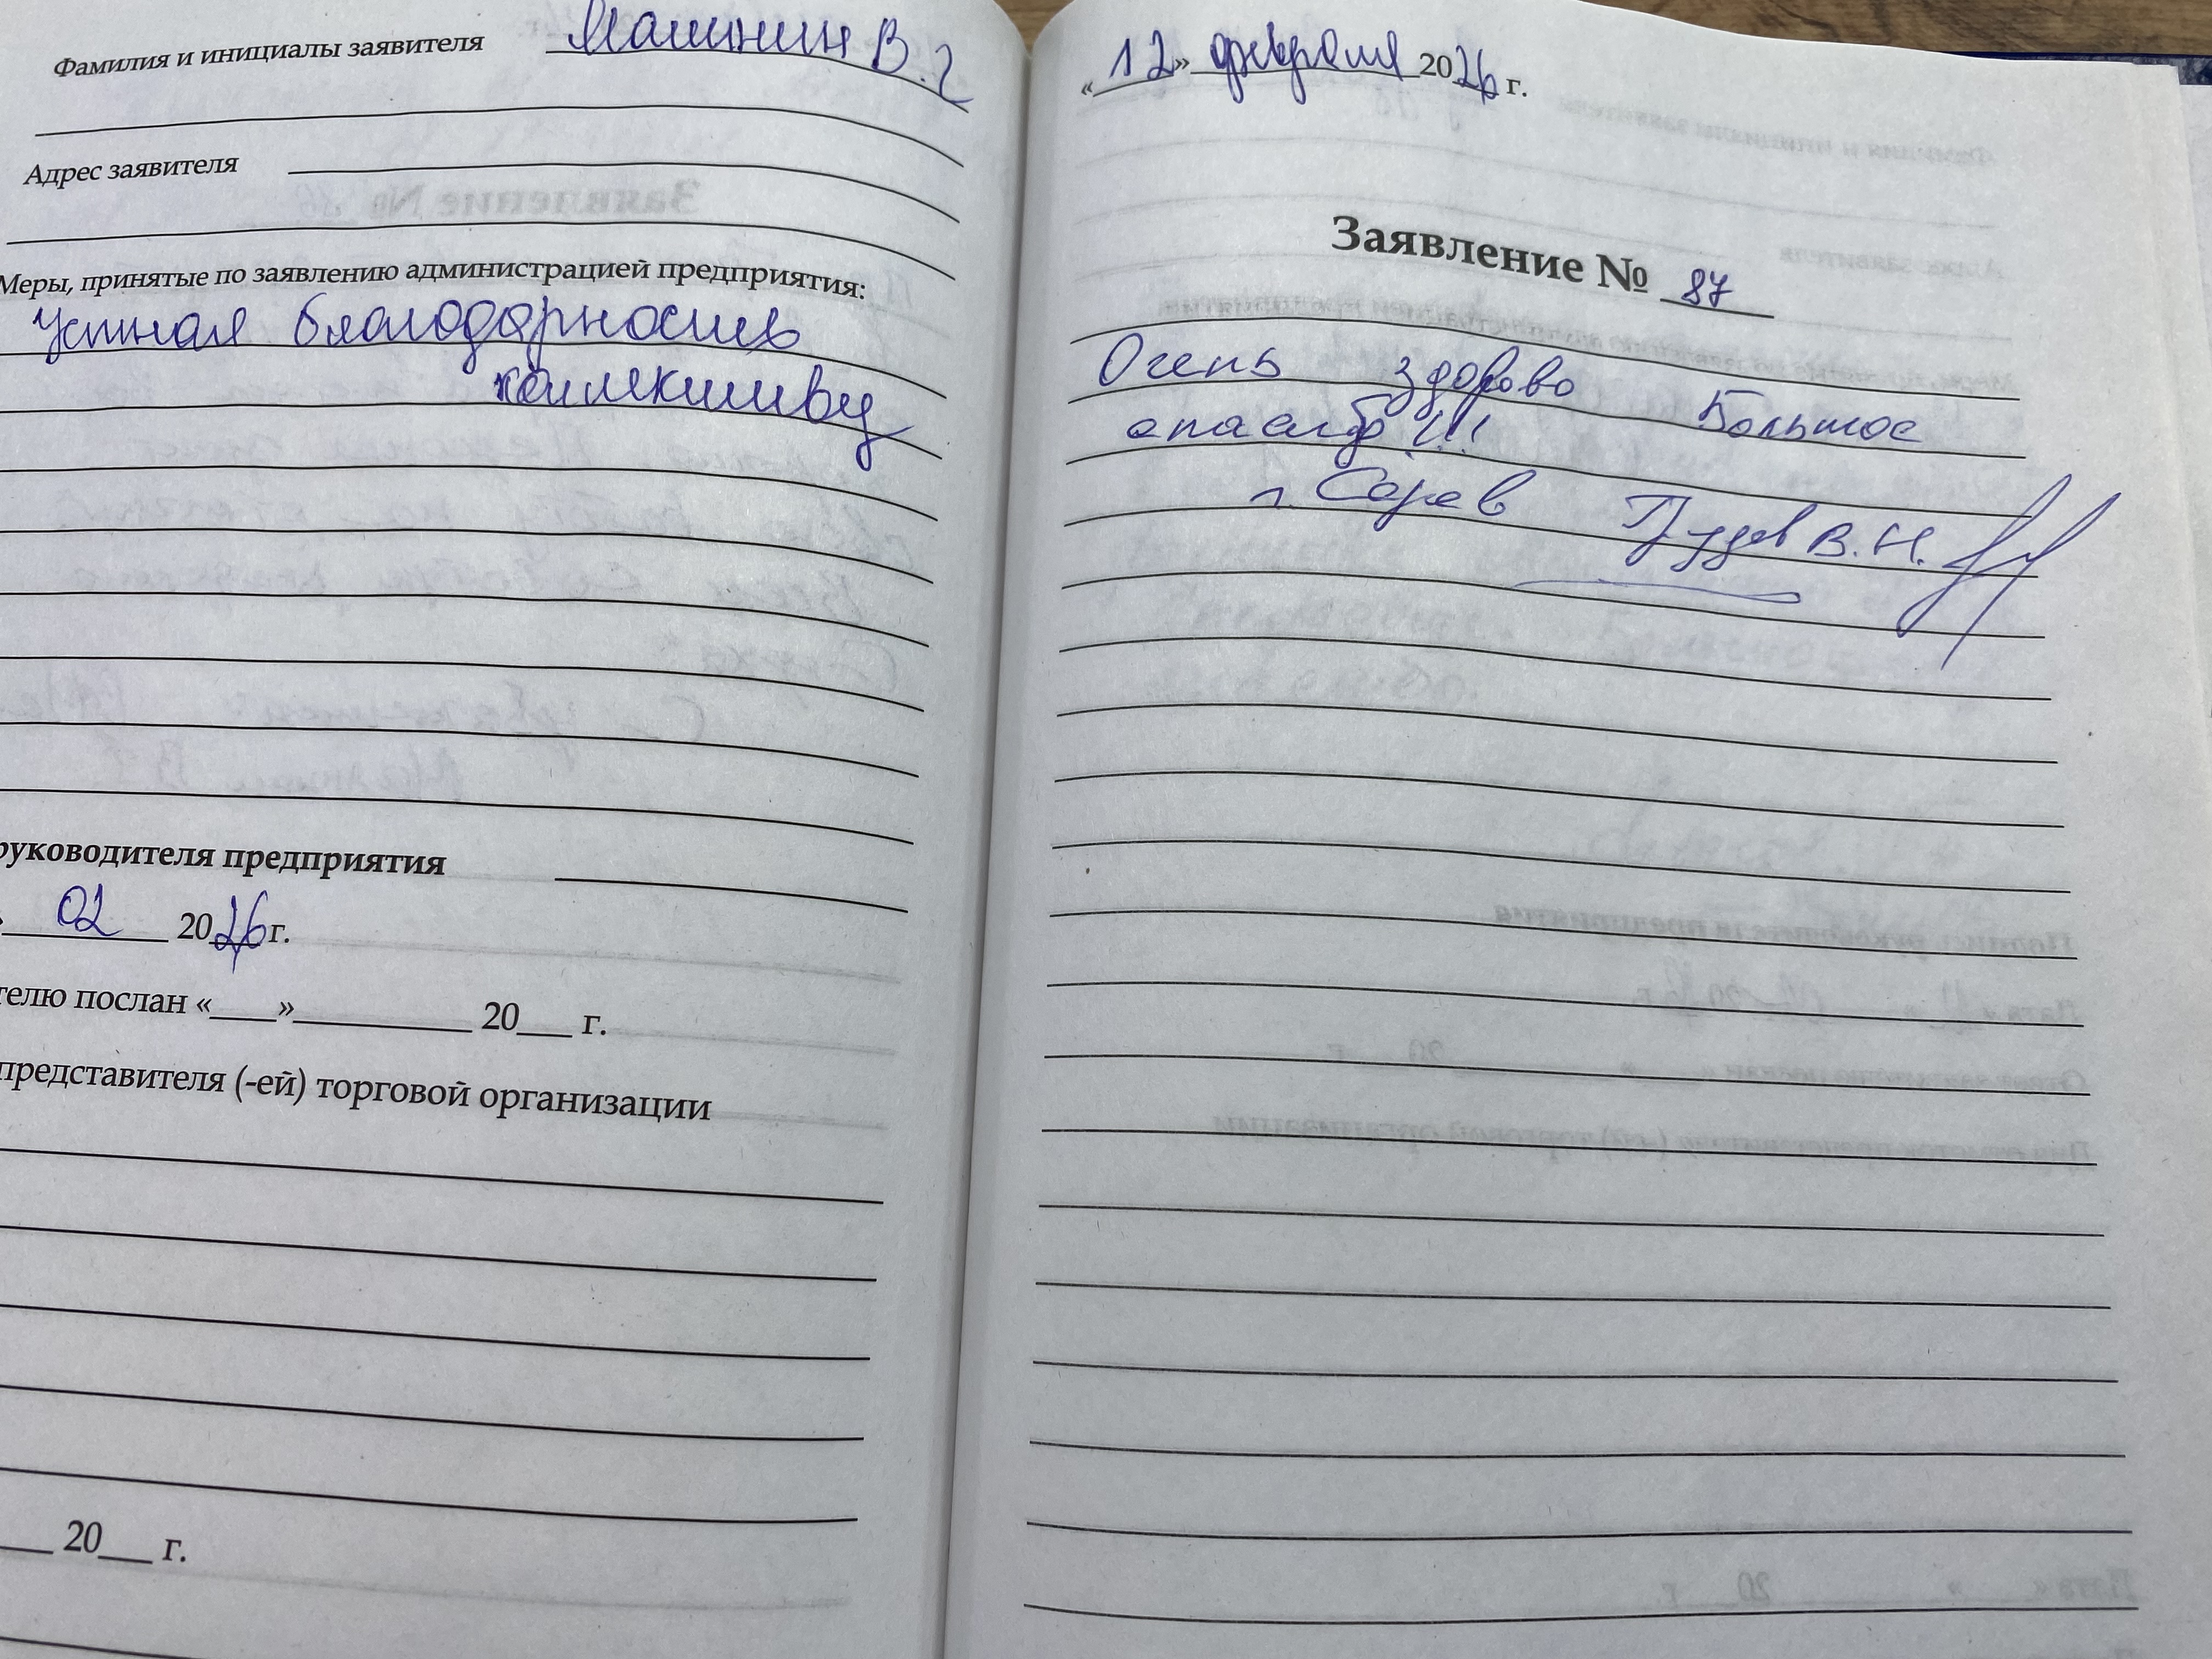 Фамилия и инициалы заявителя Машинин В.Г
Адрес заявителя
Меры, принятые по заявлению администрацией предприятия:
Устная благодарность
коллективу
руководителя предприятия
02 2026 г.
телю послан «___»__________ 20___ г.
представителя (-ей) торговой организации
20___ г.
«12» февраля 2026 г.
Заявление № 87
Очень здорово Большое
спасибо !!!
г. Саров В.Н.